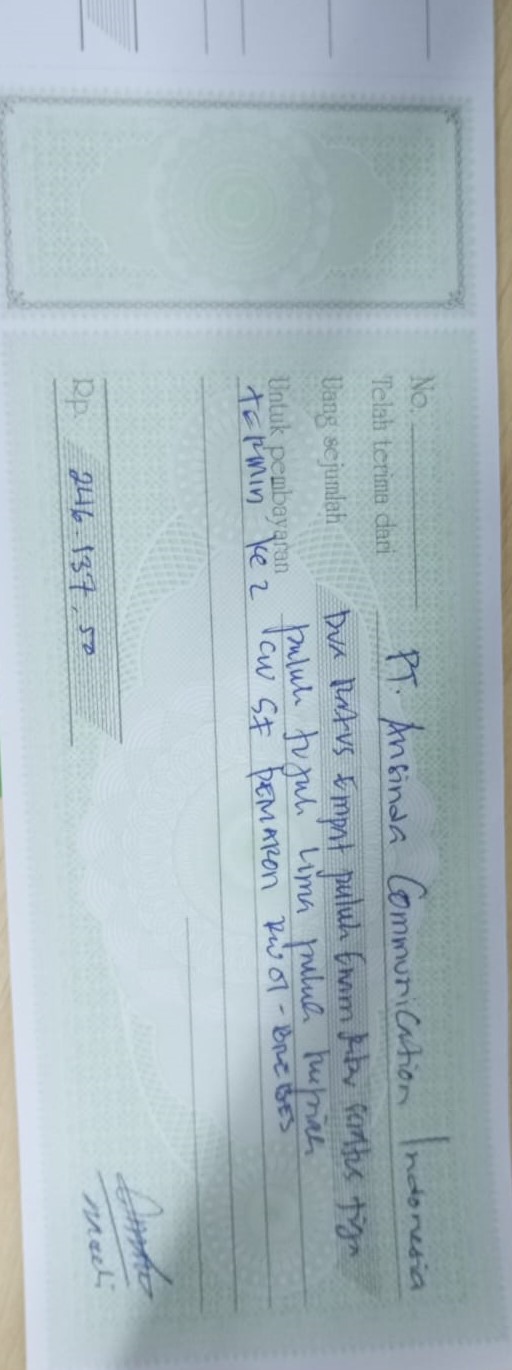 No.
Telah terima dari PT. Ansinda Communication Indonesia
Uang sejumlah Dua Ratus Empat puluh Enam Ribu seratus tiga
puluh tujuh Lima puluh rupiah
Untuk pembayaran
TERMIN ke 2 CW SF PEMARON RW 01 - BREBES
Rp. 246.137,50
Madi